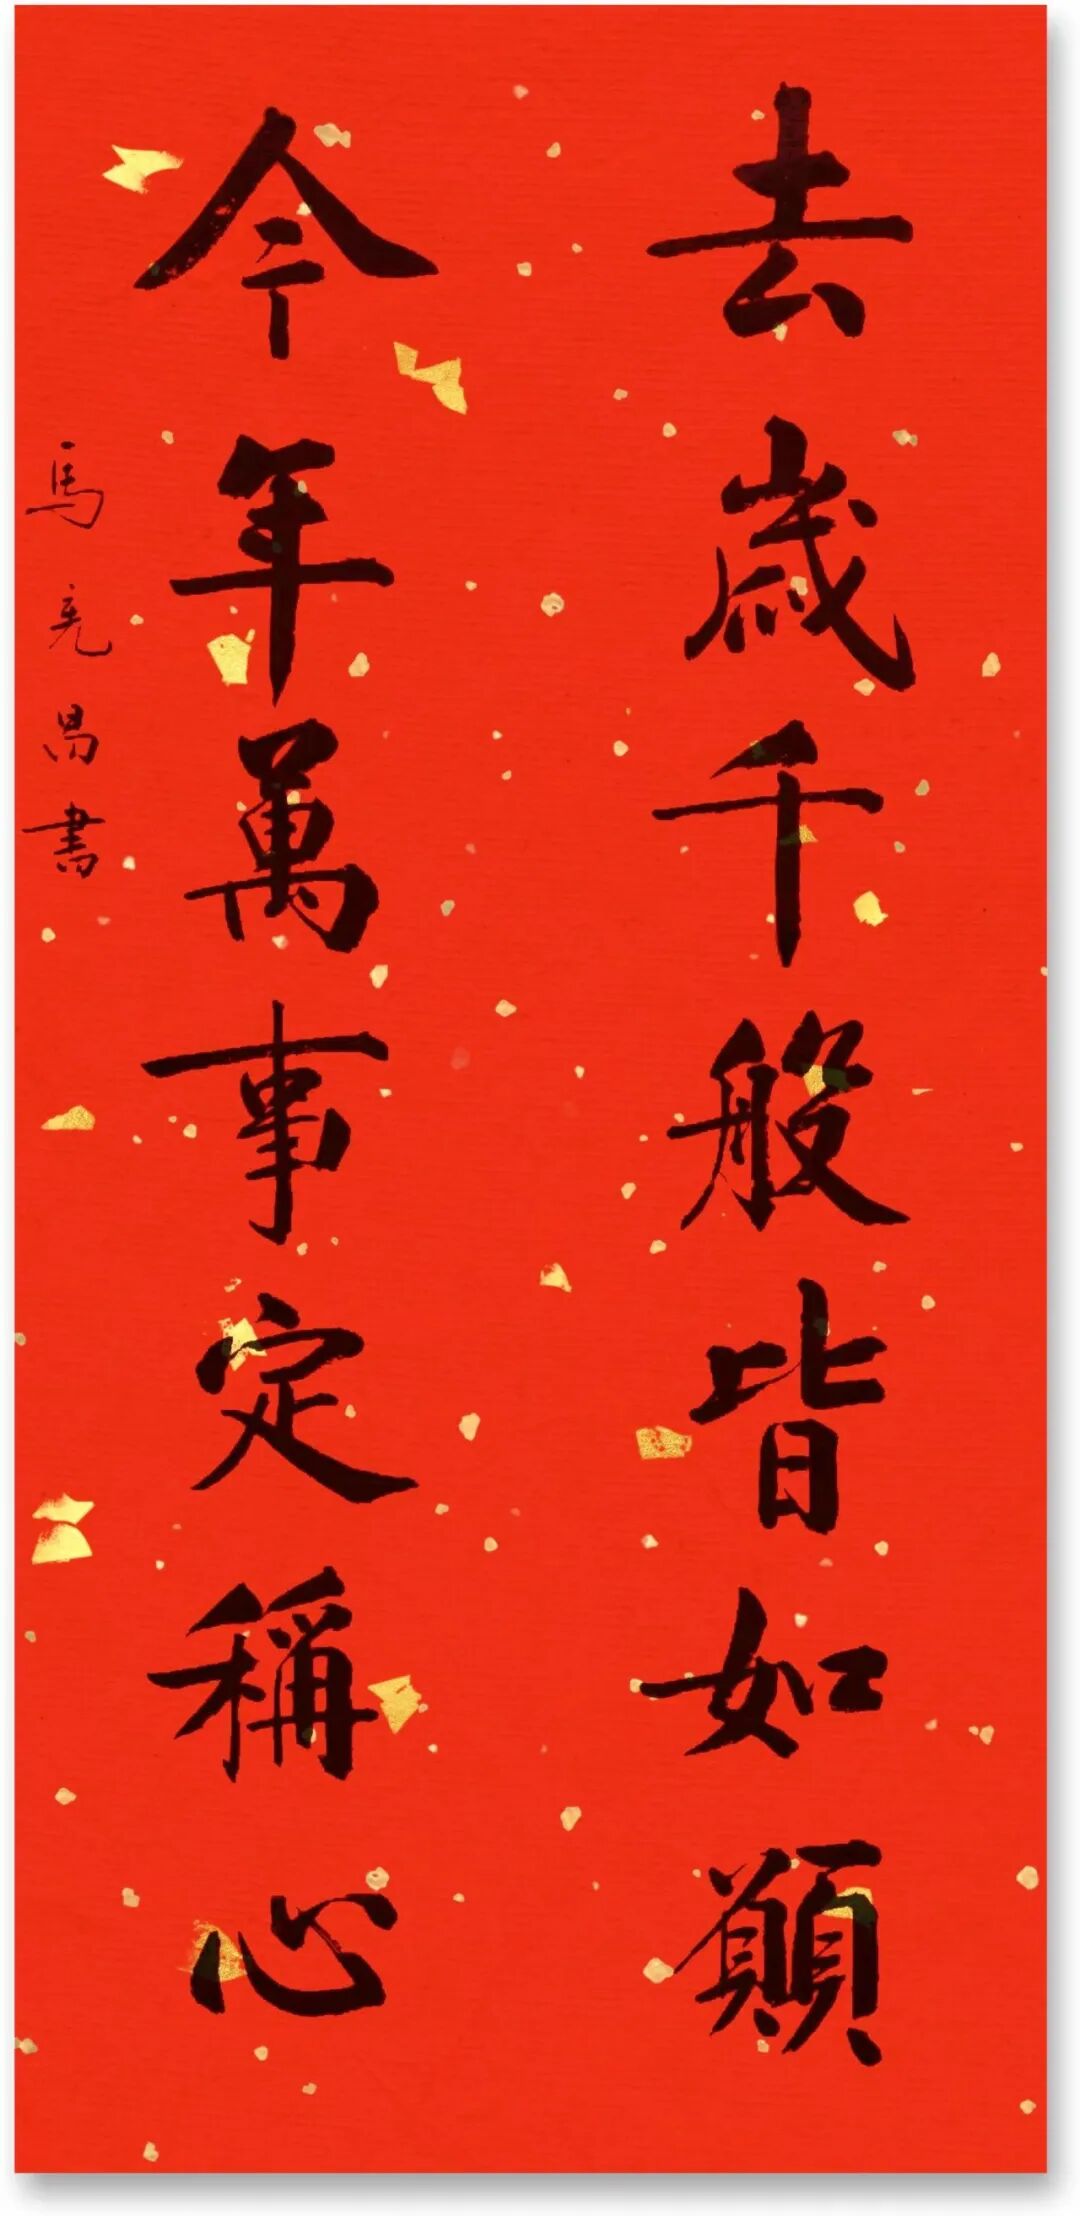 去歲千般皆如願
今年萬事定稱心
馬亮昌書